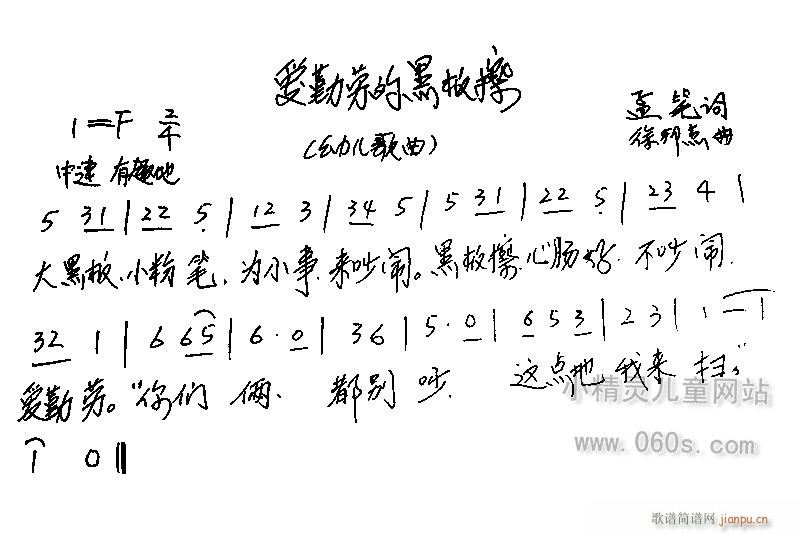 爱勤劳的黑板擦
(幼儿歌曲)
1=F 2/4
中速 有趣地
孟 笔词
徐邦杰曲
5 31 | 22 5 | 12 3 | 34 5 | 5 31 | 22 5 | 23 4 |
大黑板,小粉笔,为小事,来吵闹。黑板擦,心肠好,不吵闹,
32 1 | 6 65 | 6·0 | 36 | 5·0 | 6 5 3 | 23 | 1 — |
爱勤劳。“你们 俩、 都别 吵, 这点地 我来 扫。”
1 0 ‖
小精灵儿童网站
www.060s.com
歌谱简谱网
jianpu.cn